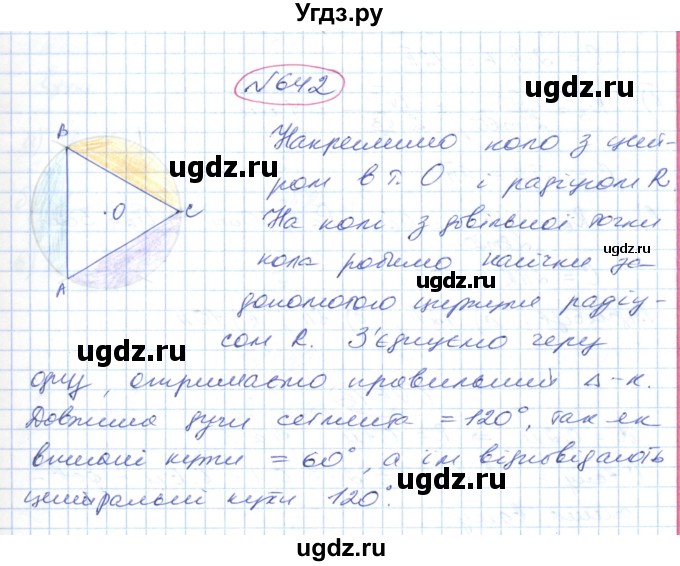 Угдз.ру
№642
ugdz.ru
B
Накреслимо коло з цент-
ugdz.ru
ром в т. О і радіусом R.
O
C
На колі з довільної точки
ugdz.ru
кола робимо насічки за
A
допомогою циркуля радіу-
ugdz.ru
сом R. З'єднуємо через
одну, отримаємо правильний Δ-к.
Довжина дуги сегмента = 120°, так як
ugdz.ru
вписані кути = 60°, а їм відповідають
ugdz.ru
центральні кути 120°.
ugdz.ru